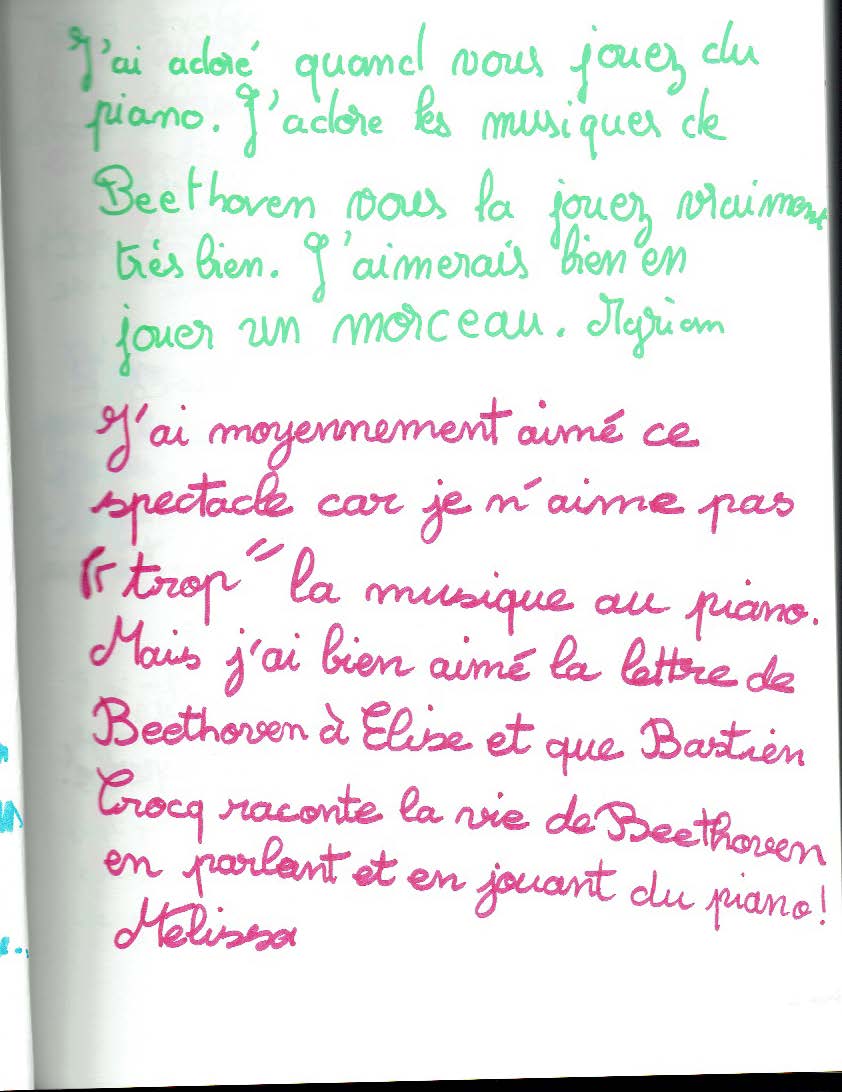 J'ai adoré quand vous jouez du
piano. J'adore les musiques de
Beethoven vous la jouez vraiment
trés bien. J'aimerais bien en
jouer un morceau. Myriam
J'ai moyennement aimé ce
spectacle car je n'aime pas
"trop" la musique au piano.
Mais j'ai bien aimé la lettre de
Beethoven à Elise et que Bastien
Crocq raconte la vie de Beethoven
en parlant et en jouant du piano!
Melissa